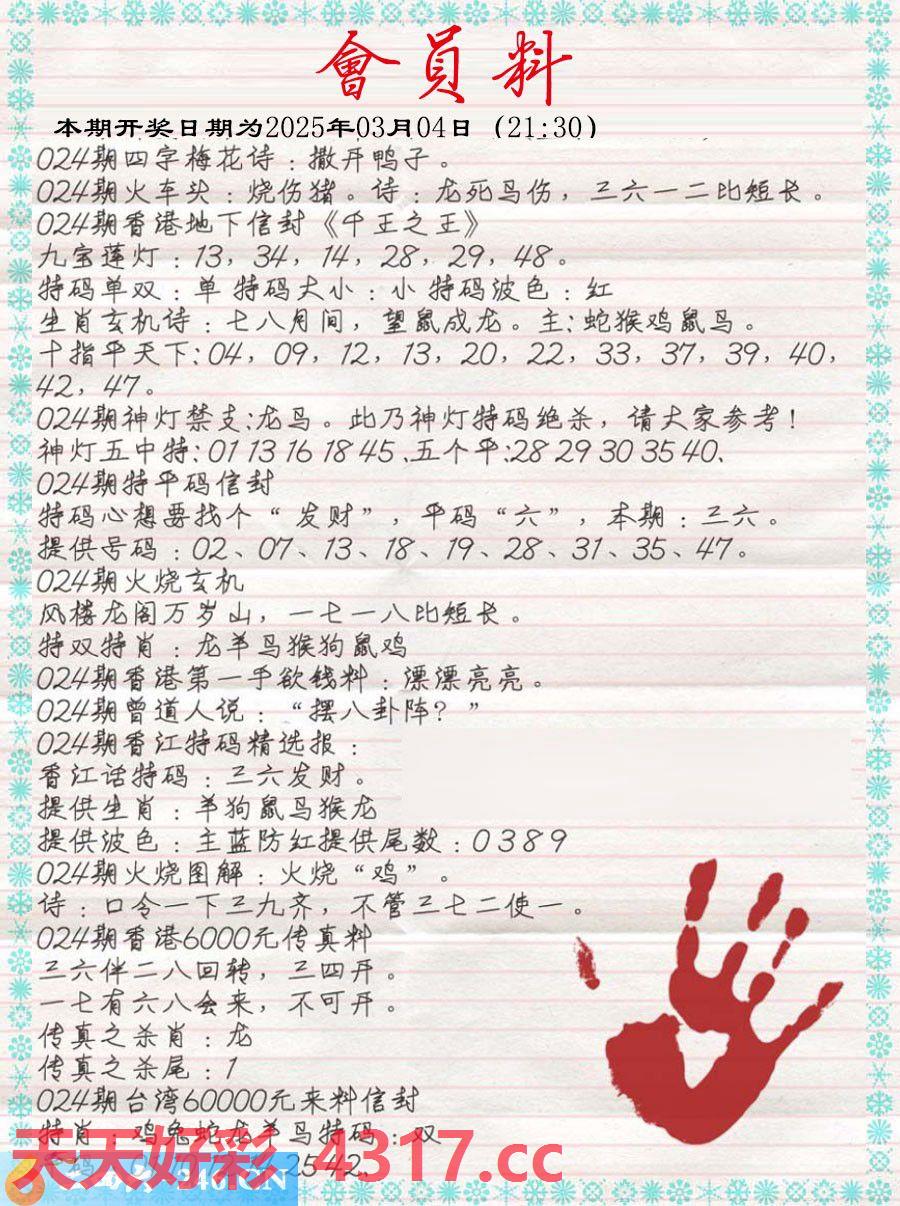 會員料
本期开奖日期为2025年03月04日（21:30）
024期四字梅花诗：撒开鸭子。
024期火车头：烧伤猪。诗：龙死马伤，三六一二比短长。
024期香港地下信封《千王之王》
九宝莲灯：13，34，14，28，29，48。
特码单双：单 特码大小：小 特码波色：红
生肖玄机诗：七八月间，望鼠成龙。主：蛇猴鸡鼠马。
十指平天下：04，09，12，13，20，22，33，37，39，40，
42，47。
024期神灯禁支：龙马。此乃神灯特码绝杀，请大家参考！
神灯五中特：01 13 16 18 45、五个平：28 29 30 35 40、
024期特平码信封
特码心想要找个“发财”，平码“六”，本期：三六。
提供号码：02、07、13、18、19、28、31、35、47。
024期火烧玄机
风楼龙阁万岁山，一七一八比短长。
特双特肖：龙羊马猴狗鼠鸡
024期香港第一手欲钱料：漂漂亮亮。
024期曾道人说：“摆八卦阵？”
024期香江特码精选报：
香江话特码：三六发财。
提供生肖：羊狗鼠马猴龙
提供波色：主蓝防红提供尾数：0389
024期火烧图解：火烧“鸡”。
诗：口令一下三九齐，不管三七二使一。
024期香港6000元传真料
三六伴二八回转，三四开。
一七有六八会来，不可开。
传真之杀肖：龙
传真之杀尾：1
024期台湾60000元来料信封
特肖：鸡兔蛇龙羊马特码：双
天天好彩 4317.cc
2542、